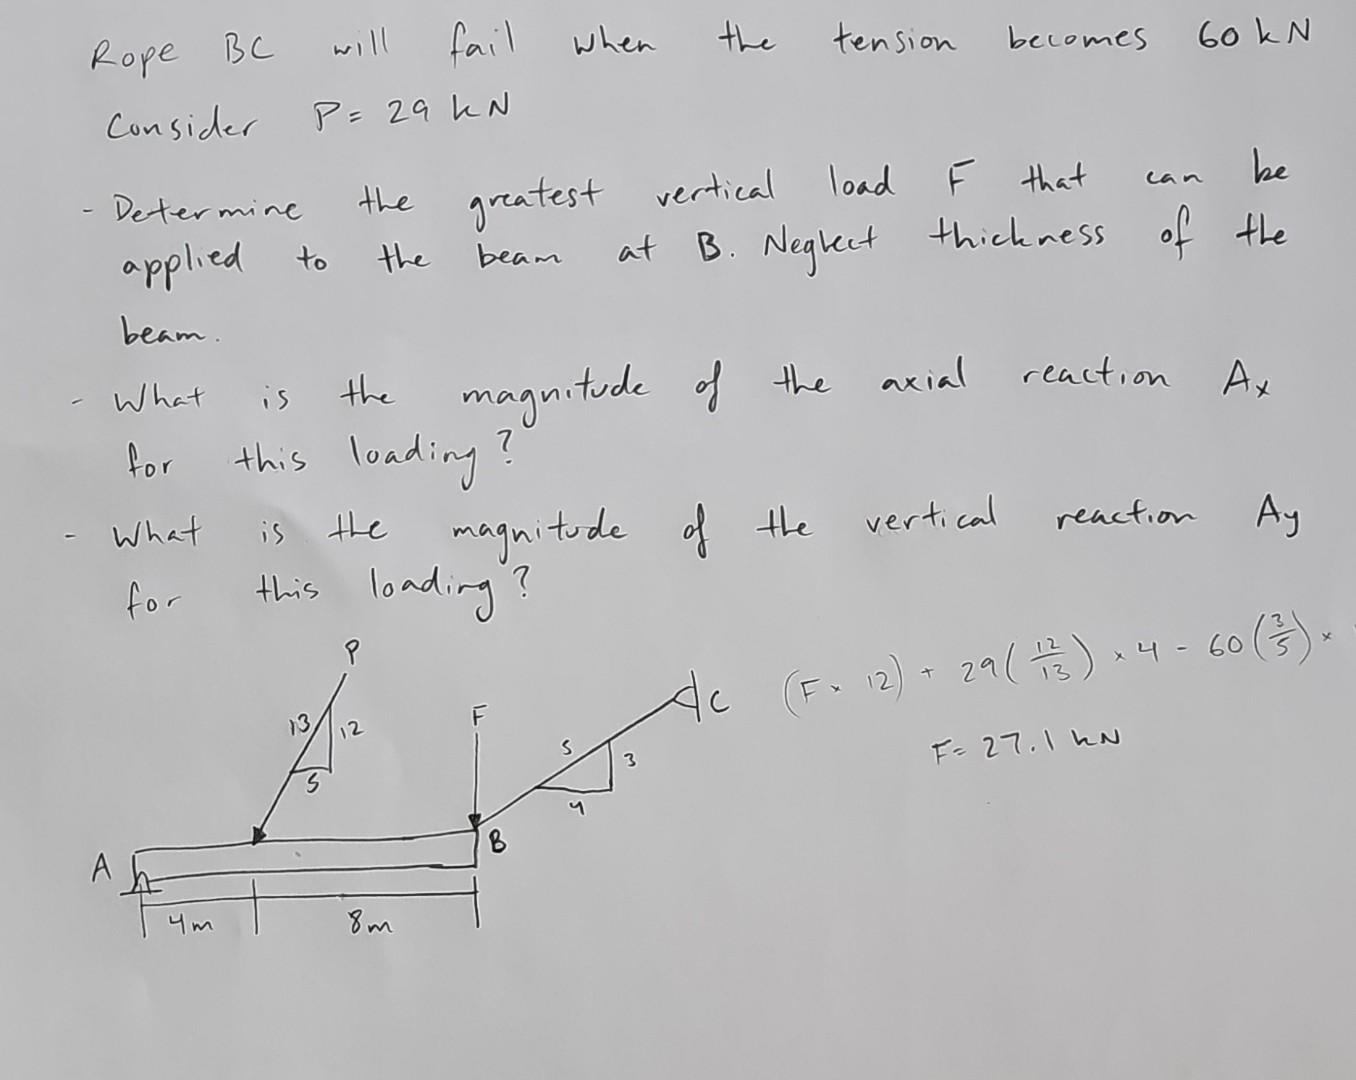 Rope BC will fail when the tension becomes 60 kN
Consider P= 29 kN
- Determine the greatest vertical load F that can be
applied to the beam at B. Neglect thickness of the
beam.
- What is the magnitude of the axial reaction Ax
for this loading?
- What is the magnitude of the vertical reaction Ay
for this loading?
P
13
12
5
F
5
3
4
C
B
A
4m
8m
(F x 12) + 29(12/13) x 4 - 60(3/5) x
F= 27.1 kN